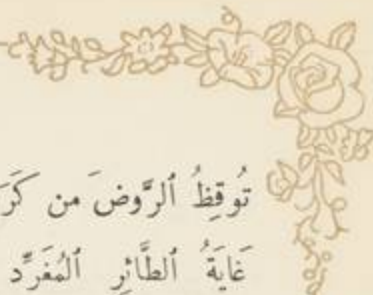 تُوقِظُ ٱلرَّوضَ من
غَايَةُ ٱلطَّائِرِ ٱلمُغَرِّد